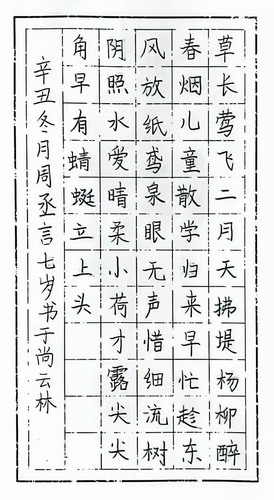 草长莺飞二月天拂堤杨柳醉
春烟儿童散学归来早忙趁东
风放纸鸢泉眼无声惜细流树
阴照水爱晴柔小荷才露尖尖
角早有蜻蜓立上头
辛丑冬月周丞言七岁书于尚云林